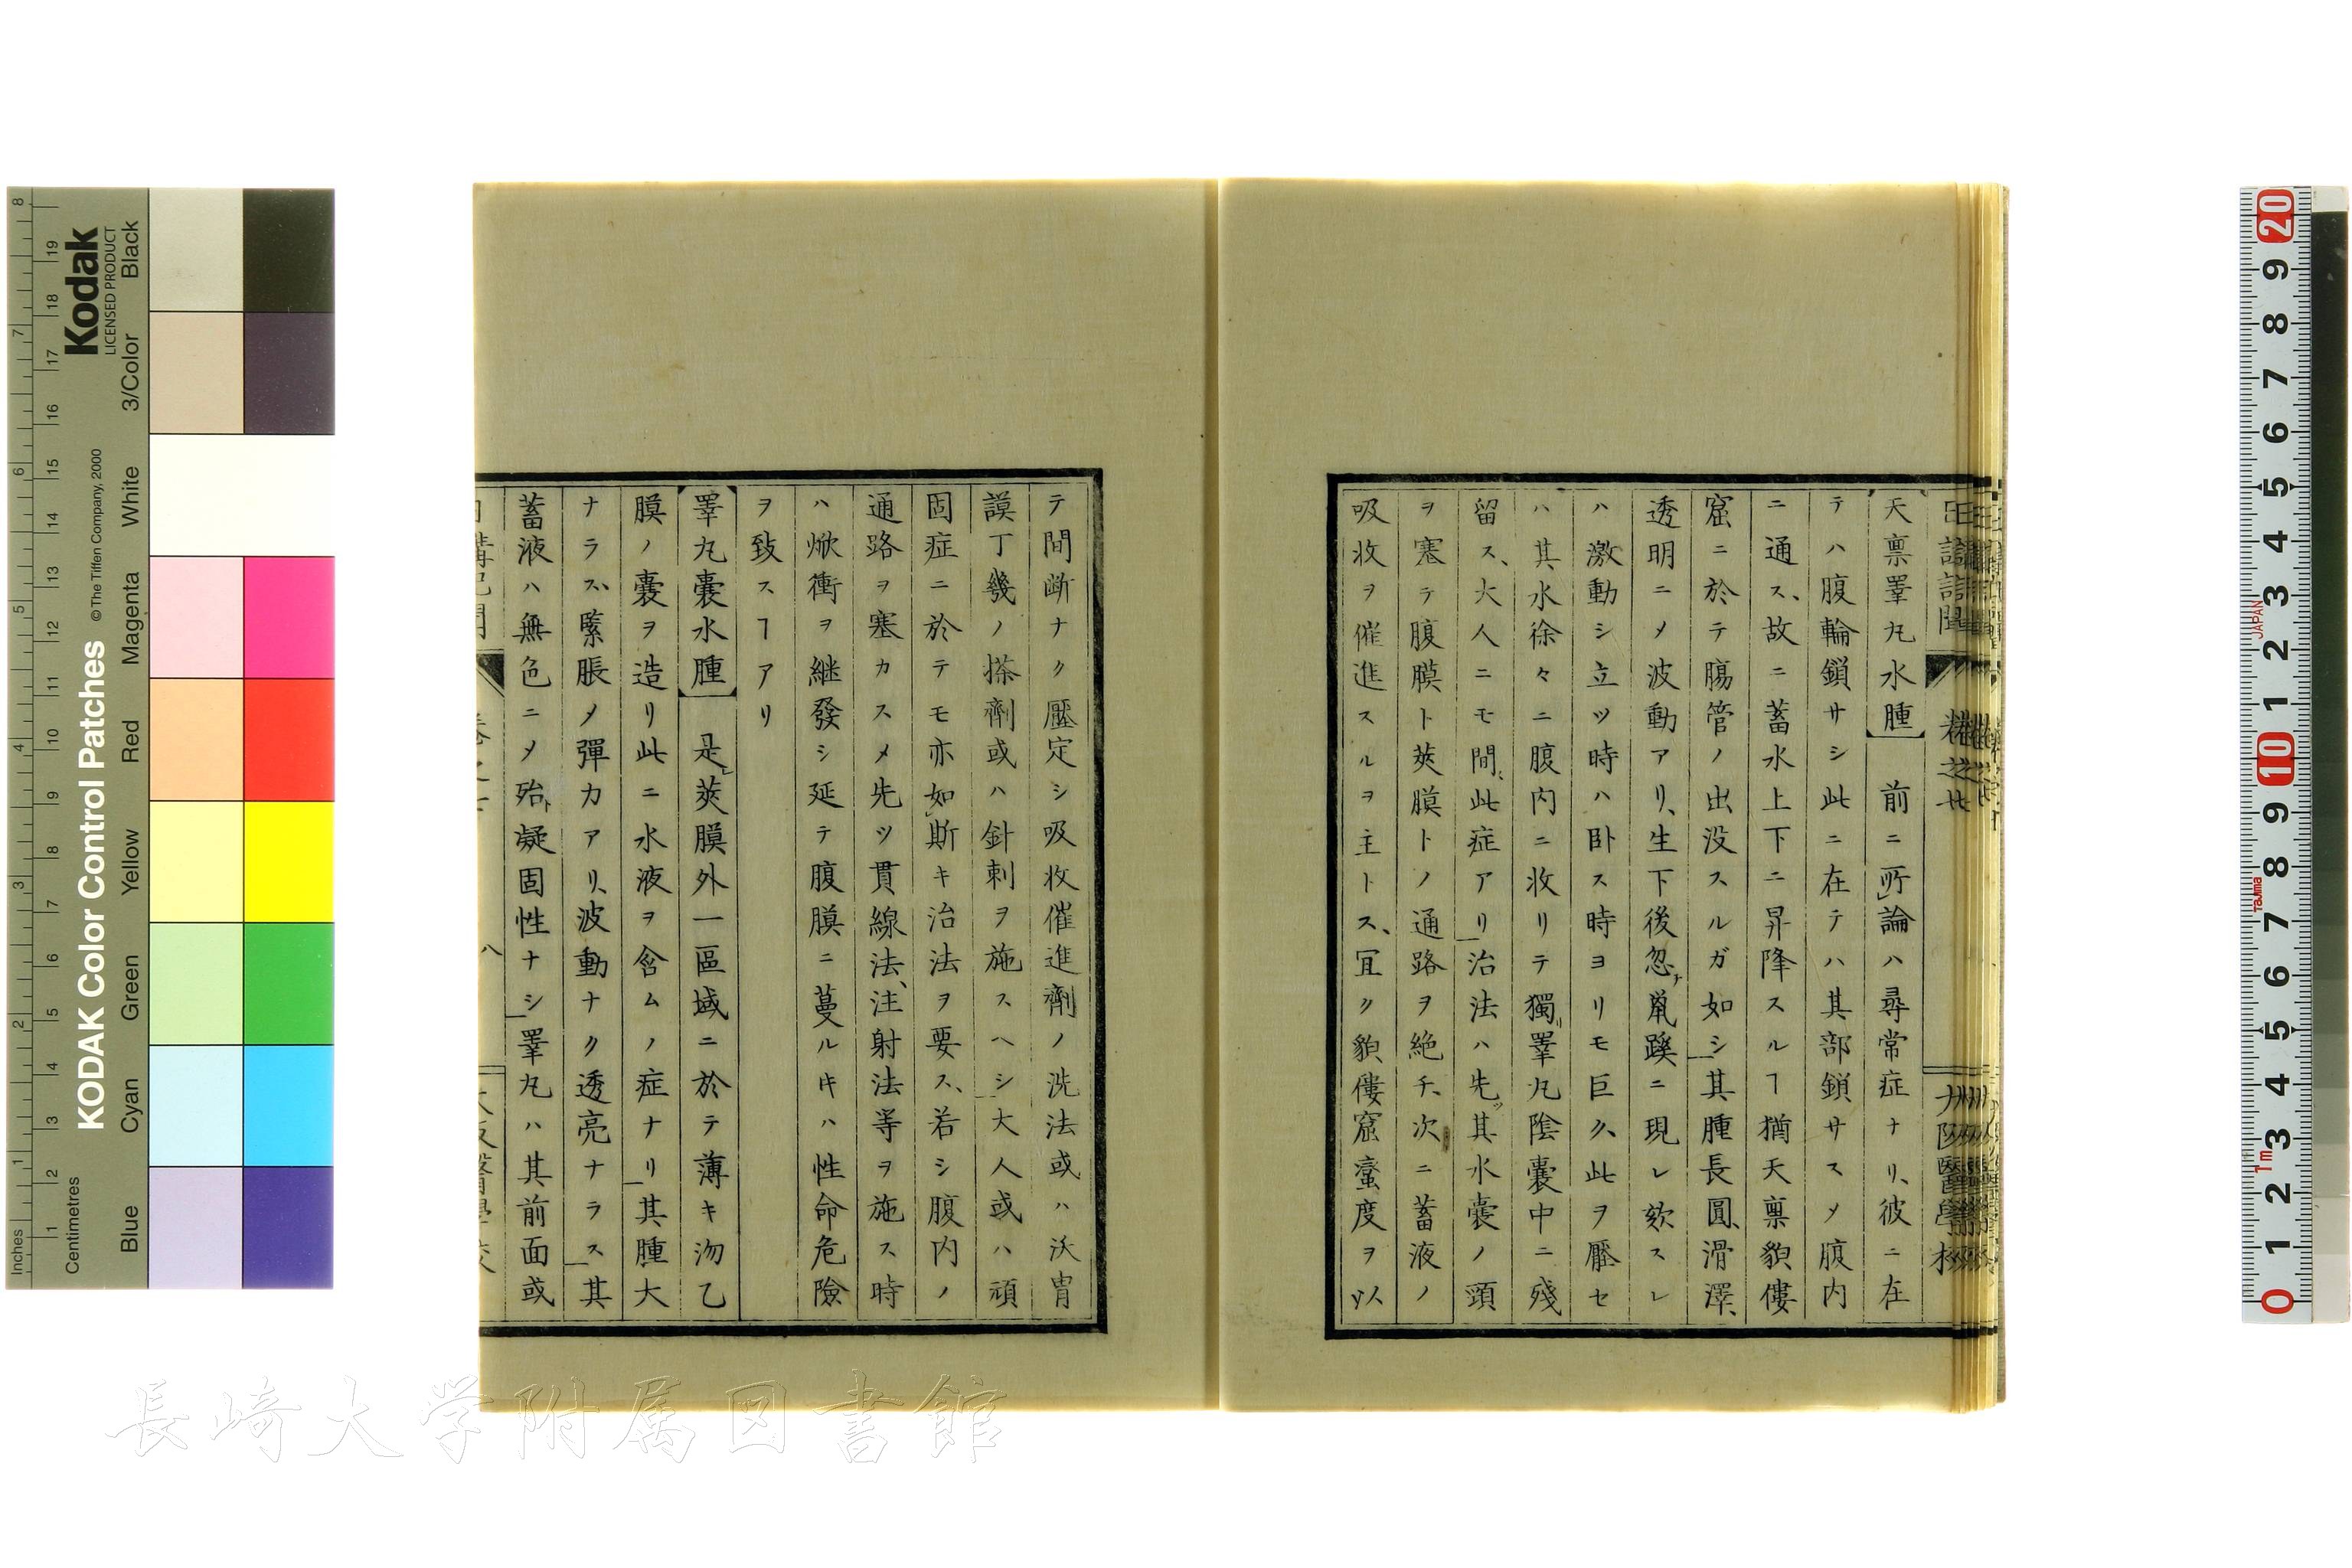 天禀睪丸水腫】 前ニ所論ハ尋常症ナリ、彼ニ在
テハ腹輪鎖サシ此ニ在テハ其部鎖サスメ腹内
ニ通ス、故ニ蓄水上下ニ昇降スルヿ猶天禀貌僂
窟ニ於テ腸管ノ出没スルガ如シ其腫長圓、滑澤、
透明ニメ波動アリ、生下後忽チ鼠蹊ニ現レ欬スレ
ハ激動シ立ツ時ハ卧ス時ヨリモ巨久、此ヲ壓セ
ハ其水徐々ニ腹内ニ收リテ獨リ睪丸陰囊中ニ殘
留ス、大人ニモ間〻此症アリ治法ハ先ツ其水囊ノ頭
ヲ塞テ腹膜ト莢膜トノ通路ヲ絶チ、次ニ蓄液ノ
吸收ヲ催進スルヲ主トス、冝ク貌僂窟蠻度ヲ以
テ間断ナク壓定シ吸收催進劑ノ洗法或ハ沃胄
謨丁幾ノ搽劑或ハ針刺ヲ施スヘシ大人或ハ頑
固症ニ於テモ亦如斯キ治法ヲ要ス、若シ腹内ノ
通路ヲ塞カスメ先ツ貫線法、注射法等ヲ施ス時
ハ焮衝ヲ継發シ延テ腹膜ニ蔓ルキハ性命危險
ヲ致スヿアリ
【睪丸囊水腫】 是レ莢膜外一區域ニ於テ薄キ沕乙
膜ノ囊ヲ造リ此ニ水液ヲ含ムノ症ナリ其腫大
ナラス、緊脹メ彈力アリ、波動ナク透亮ナラス其
蓄液ハ無色ニメ殆ト凝固性ナシ睪丸ハ其前面或
八
KODAK Color Control Patches
© The Tiffen Company, 2000
Kodak
LICENSED PRODUCT
Inches
Centimetres
Blue
Cyan
Green
Yellow
Red
Magenta
White
3/Color
Black
JAPAN
Tajima
1m
長崎大学附属図書館